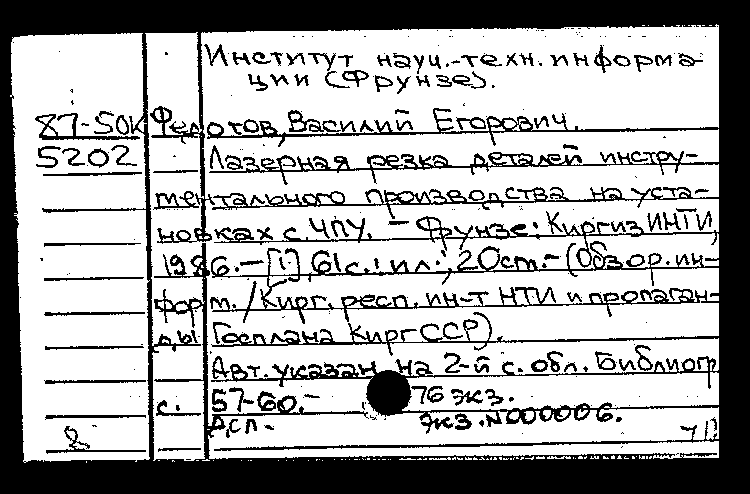 Институт науч.-техн. информа-
ции (Фрунзе).
87-50К Федотов, Василий Егорович.
5202 Лазерная резка деталей инстру-
ментального производства на уста-
новках с ЧПУ. – Фрунзе: КиргизИНТИ,
1986. – [1], 61 с.: ил.; 20 ст. – (Обзор. ин-
форм. / Кирг. респ. ин-т НТИ и пропаган-
ды Госплана КиргССР).
Авт. указан на 2-й с. обл. Библиогр.
с. 57-60. – 76 экз.
Дсп. экз. N000006.
8